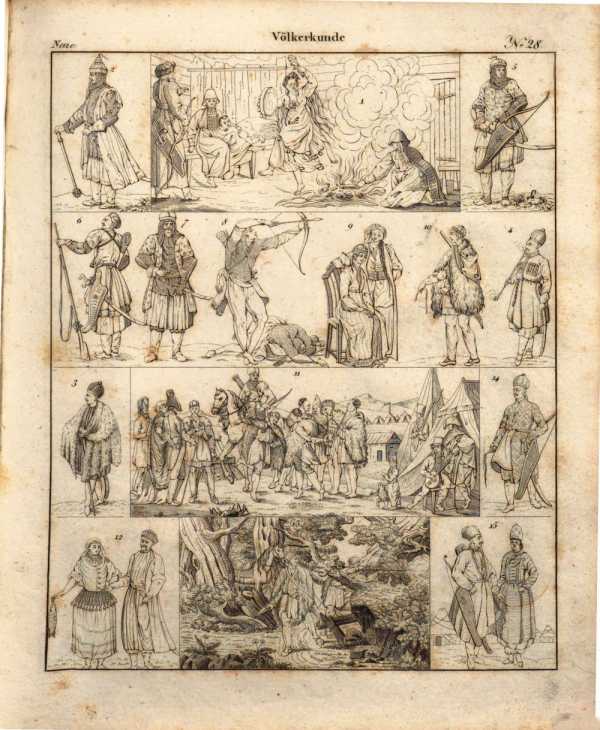 Völkerkunde
Neue
No 28
2
1
5
6
7
8
9
10
4
3
11
14
12
15